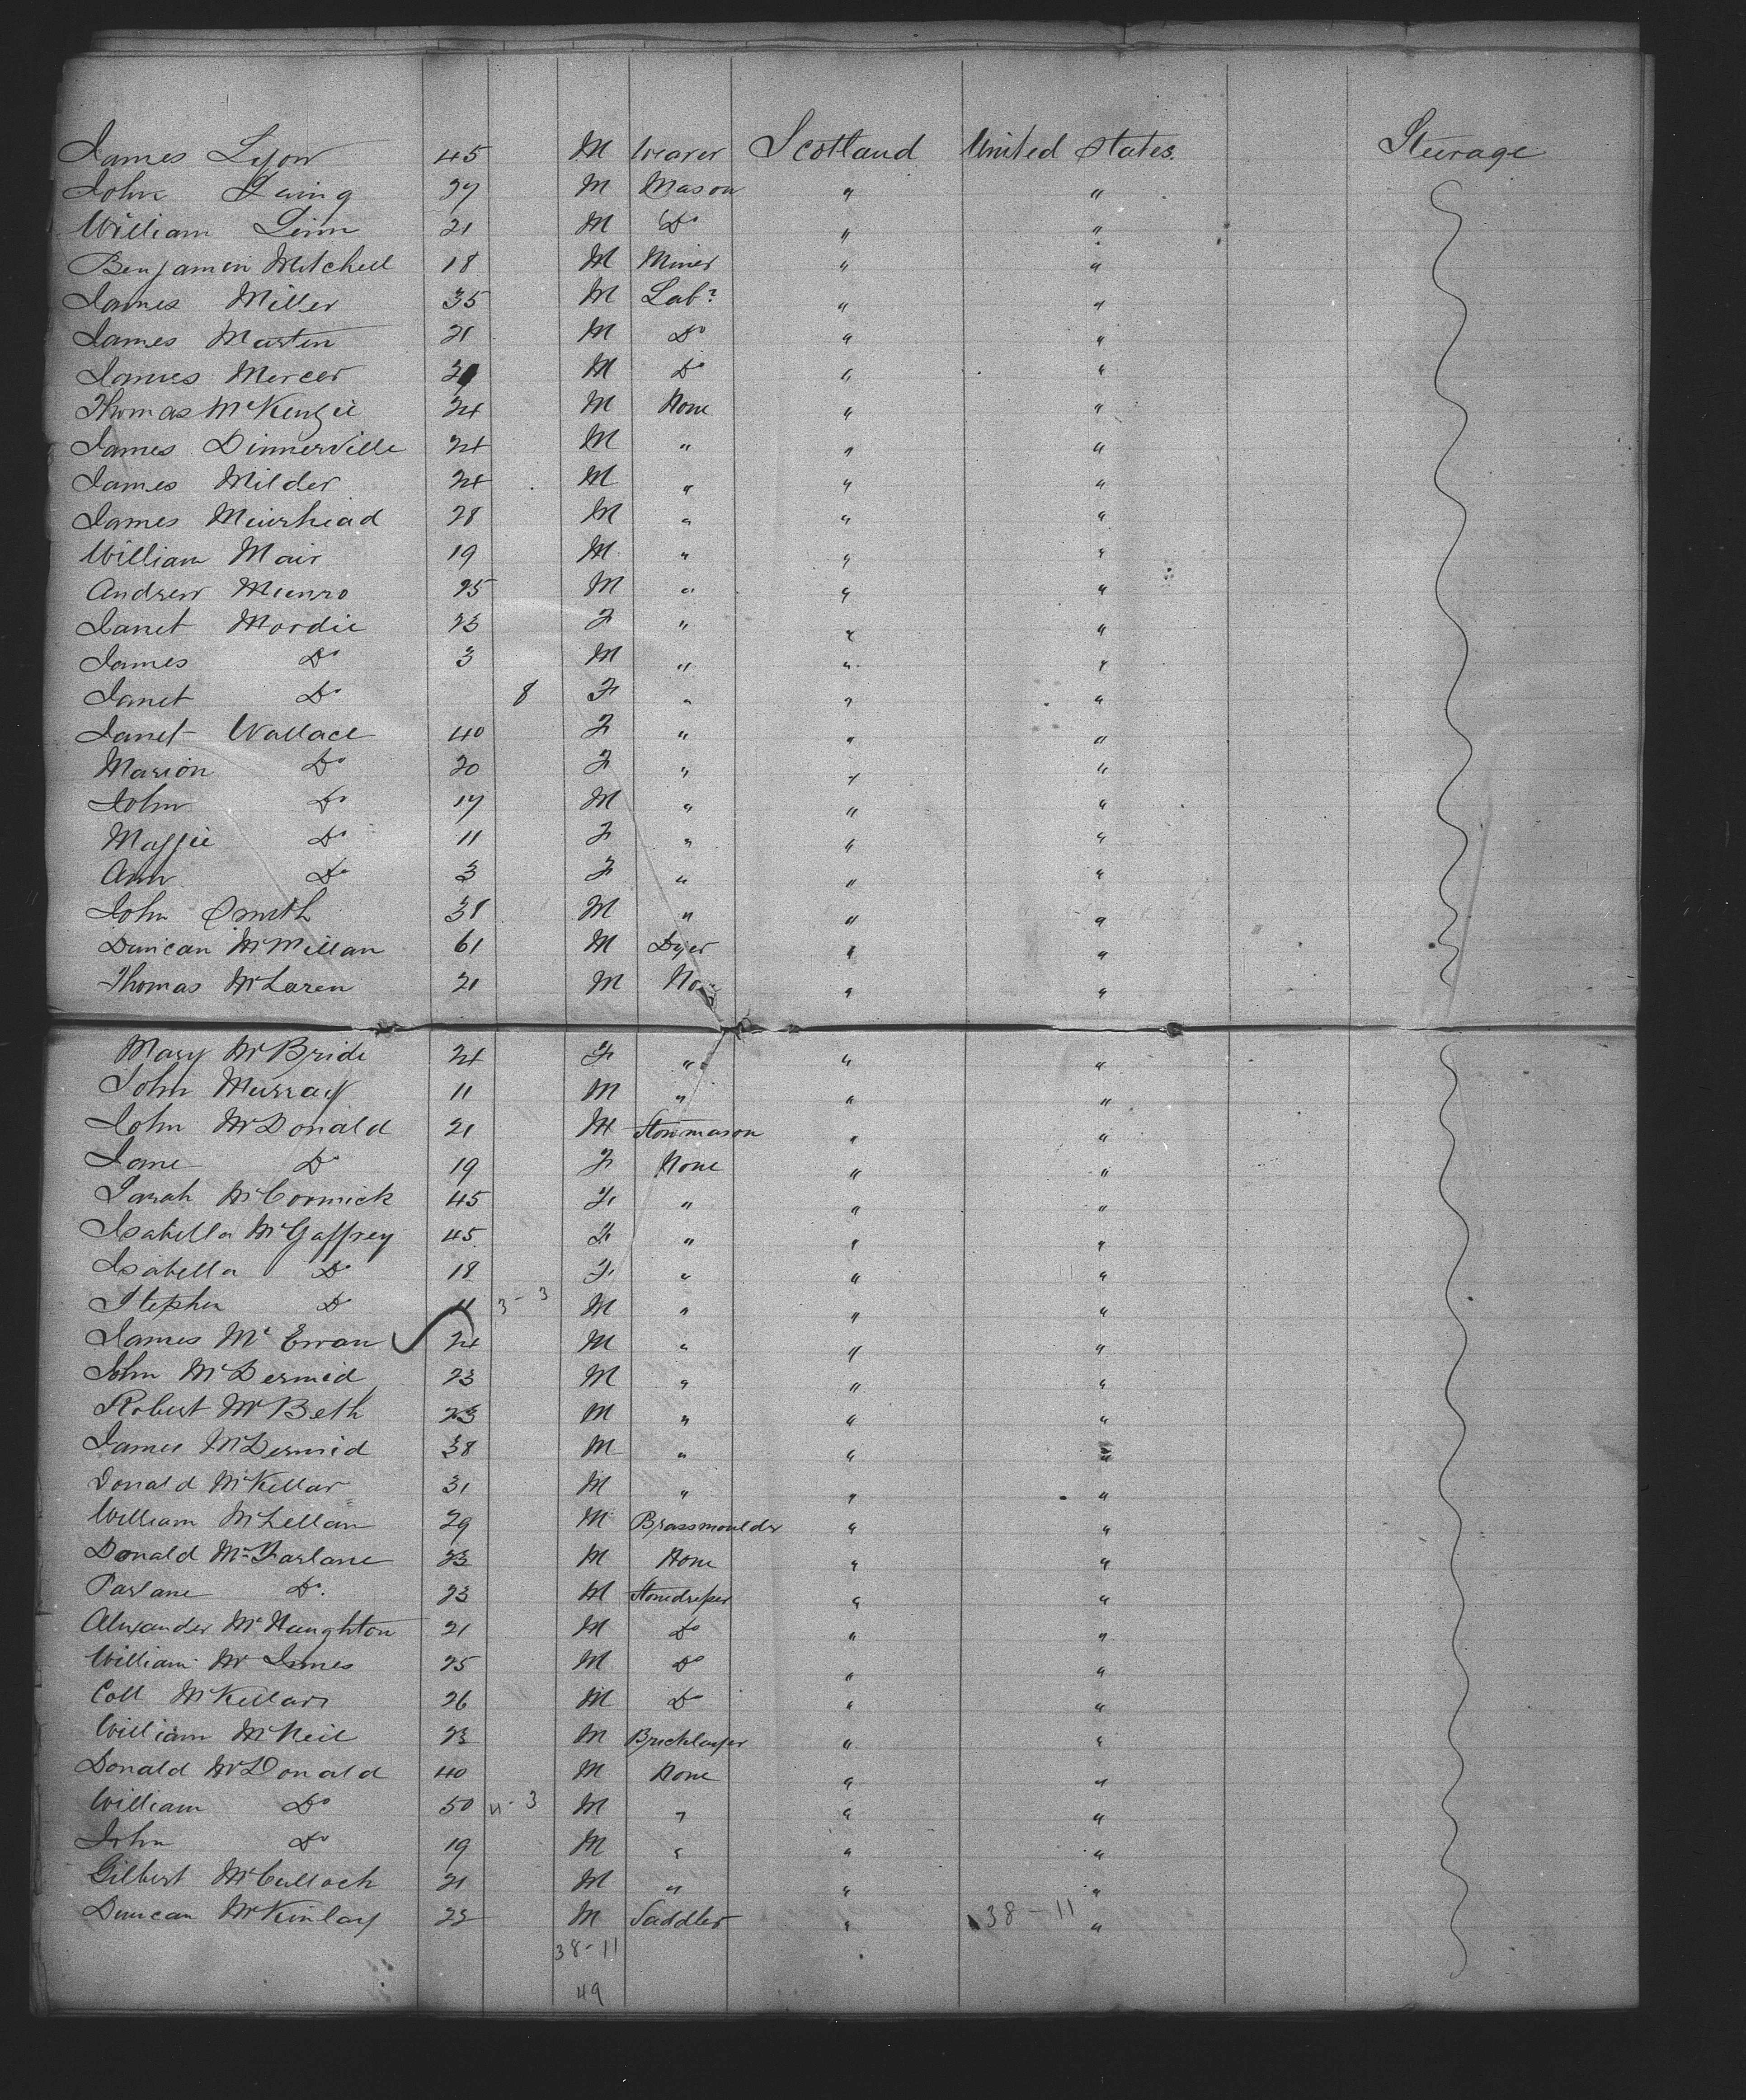 James Lyon 45 M Weaver Scotland United States Steerage
John Laing 27 M Mason " "
William Linn 21 M Do " "
Benjamin Mitchell 18 M Miner " "
James Miller 35 M Labr " "
James Martin 21 M Do " "
James Mercer M Do " "
Thomas McKenzie 24 M None " "
James Dinnerville 24 M " " "
James Milder 24 M " " "
James Muirhead 28 M " " "
William Mair 19 M " " "
Andrew Munro 25 M " " "
Janet Mordie 23 F " " "
James Do 3 M " " "
Janet Do 8 F " " "
Janet Wallace 40 F " " "
Marion Do 20 F " " "
John Do 17 M " " "
Maggie Do 11 F " " "
Ann Do 3 F " " "
John Smith 38 M " " "
Duncan McMillan 61 M Dyer " "
Thomas McLaren 21 M " "
Mary McBride 24 F " " "
John Murray 11 M " " "
John McDonald 21 M Stonmason " "
Jane Do 19 F None " "
Sarah McCormick 45 F " " "
Isabella McGaffrey 45 F " " "
Isabella Do 18 F " " "
Stephen Do 11 3-3 M " " "
James McEwan 24 M " " "
John McDermid 23 M " " "
Robert McBeth 23 M " " "
James McDermid 38 M " " "
Donald McKellar 31 M " " "
William McLellan 29 M Brassmoulder " "
Donald McFarlane 23 M None " "
Parlane Do 23 M Stonedreser " "
Alexander McNaughton 21 M Do " "
William McInnes 25 M Do " "
Coll McKellar 26 M Do " "
William McNeil 23 M Bricklayer " "
Donald McDonald 40 M None " "
William Do 50 4-3 M " " "
John Do 19 M " " "
Gilbert McCulloch 21 M " " "
Duncan McKinlay 22 M Saddler " 38-11 "
38-11
49